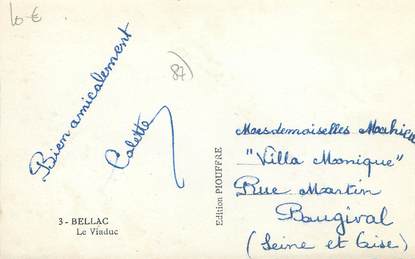 10 €
87)
Bien amicalement
Colette
3 - BELLAC
Le Viaduc
Edition PIOUFFRE
Mesdemoiselles Mathieu
"Villa Monique"
Rue Martin
Bougival
(Seine et Oise)